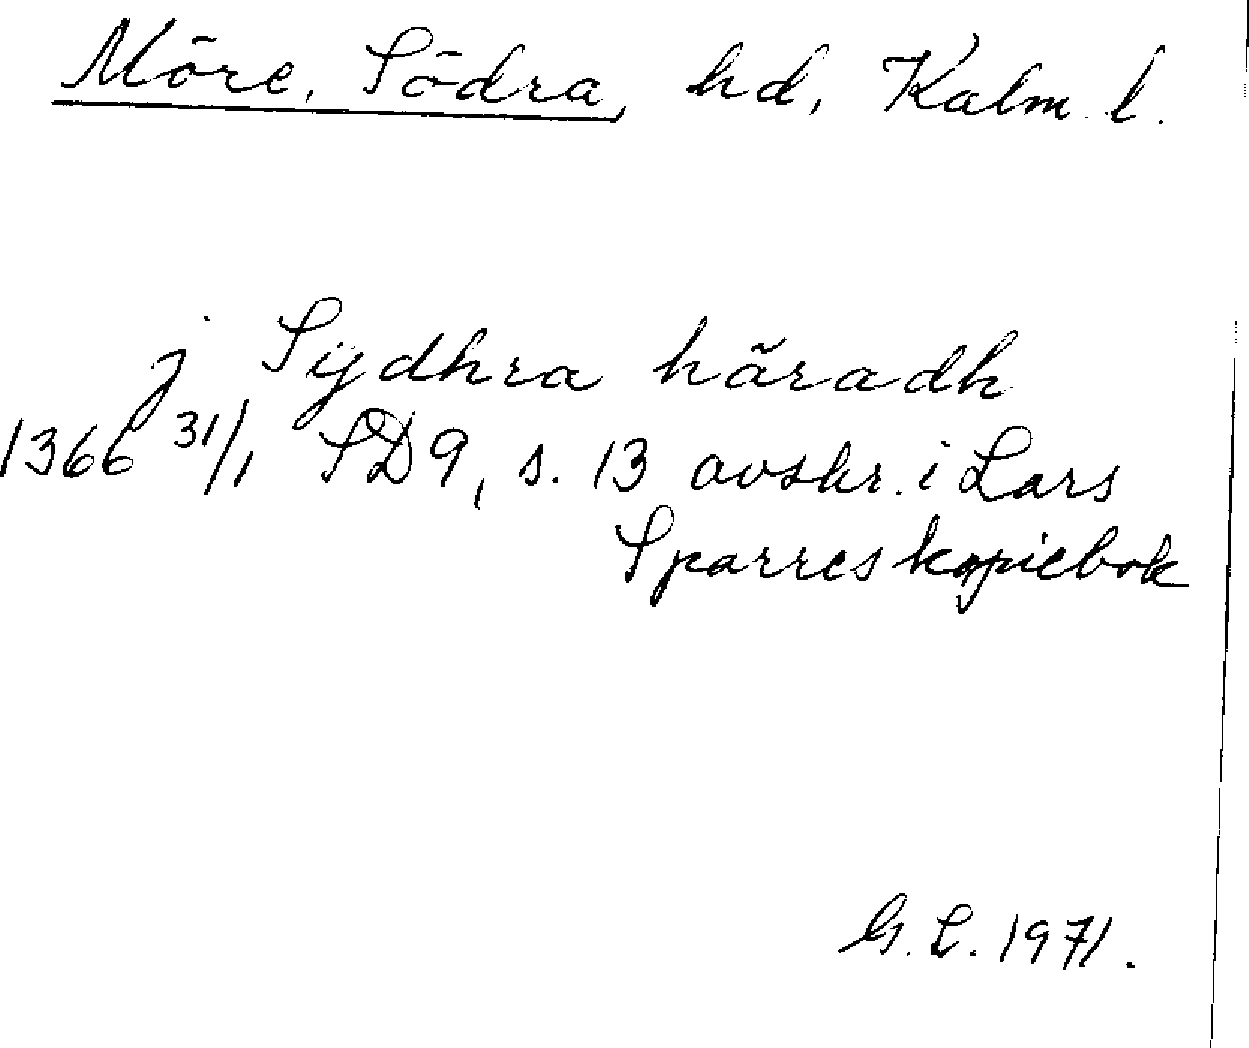 Möre, Södra, hd, Kalm. l.
j Sÿdhra häradh
1366 31/1 SD 9, s. 13 avskr. i Lars
Sparres kopiebok
G. L. 1971.